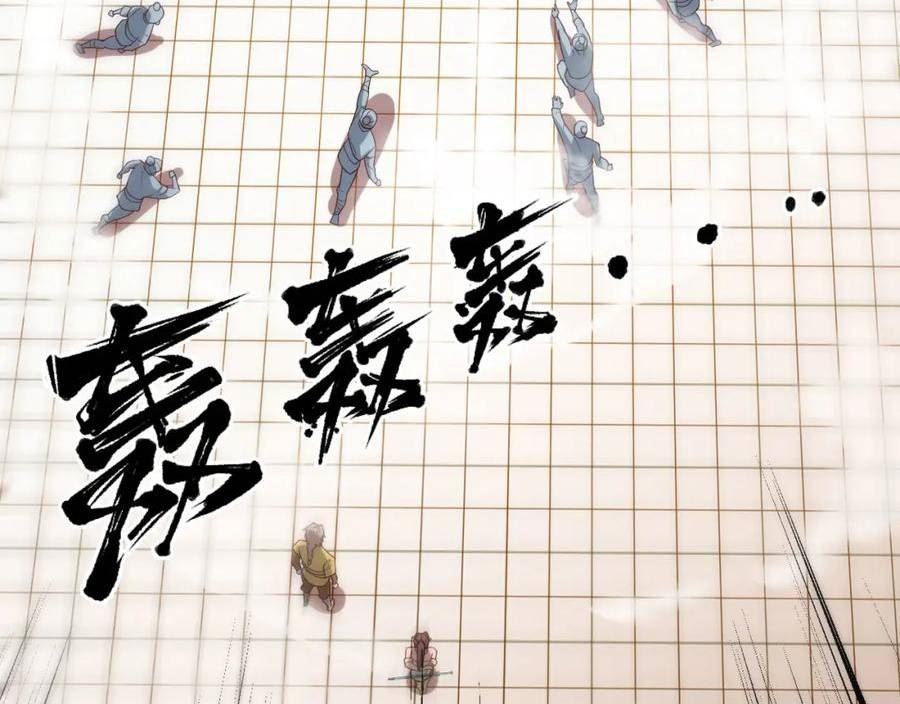 轰轰轰......